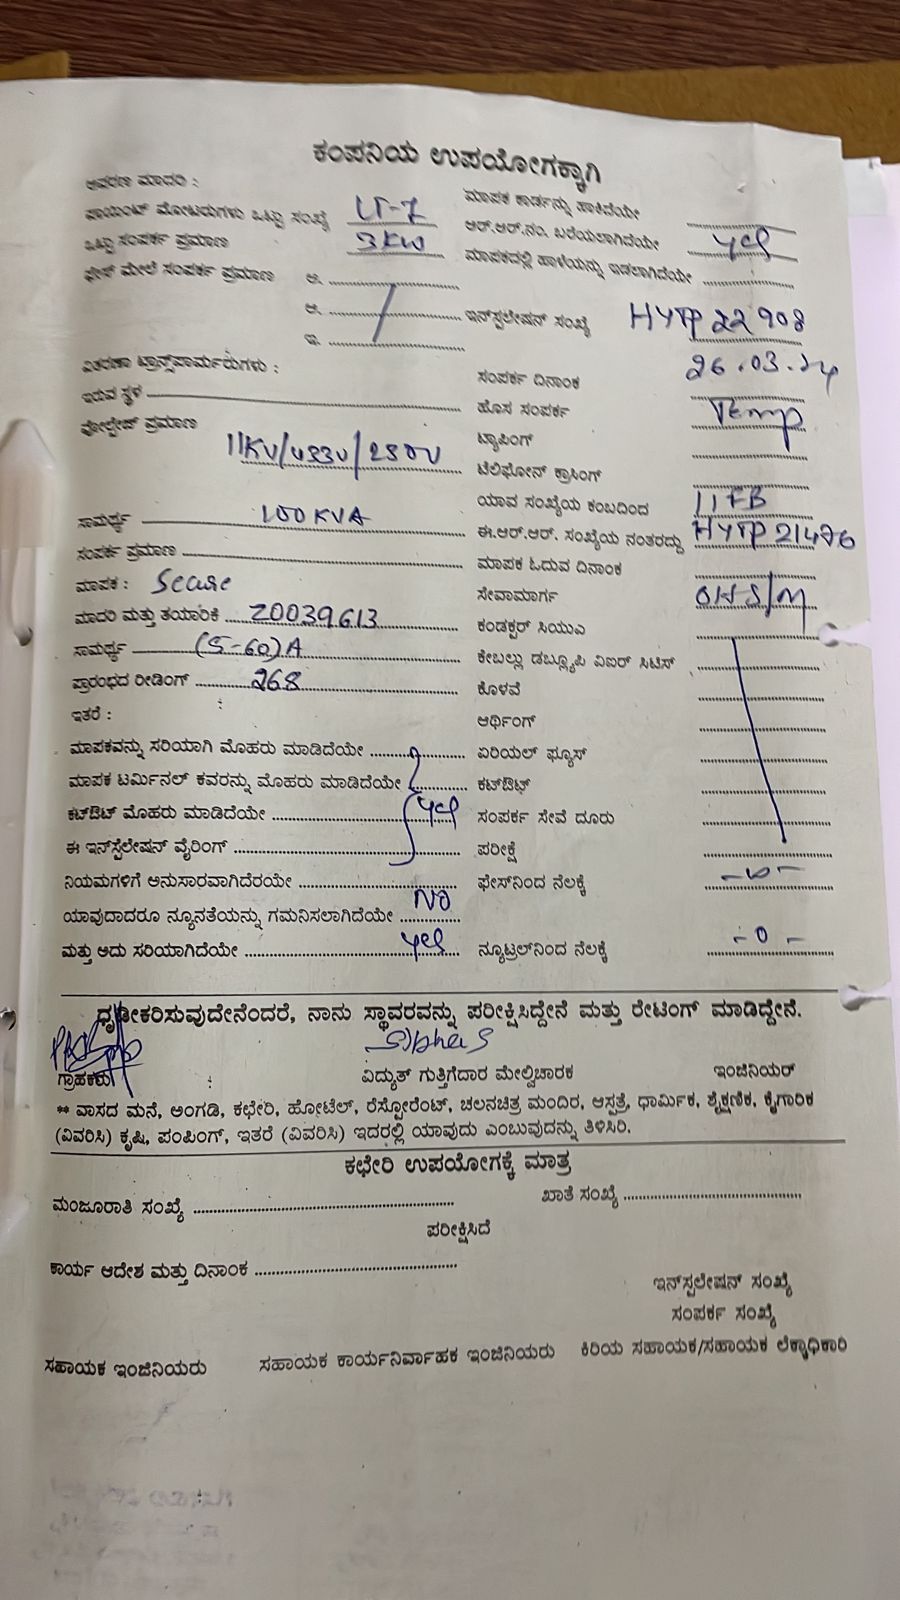 ಕಂಪನಿಯ ಉಪಯೋಗಕ್ಕಾಗಿ
ಆವರಣ ಮಾದರಿ :
ಪಾಯಿಂಟ್ ಮೋಟರುಗಳು ಒಟ್ಟು ಸಂಖ್ಯೆ LT-7
ಒಟ್ಟು ಸಂಪರ್ಕ ಪ್ರಮಾಣ 3KW
ಫೇಸ್ ಮೇಲೆ ಸಂಪರ್ಕ ಪ್ರಮಾಣ ಅ.
ಆ.
ಇ.
ವಿತರಣಾ ಟ್ರಾನ್ಸ್‌ಫಾರ್ಮರುಗಳು :
ಇರುವ ಸ್ಥಳ
ವೋಲ್ಟೇಜ್ ಪ್ರಮಾಣ
11KV/433V/250V
ಸಾಮರ್ಥ್ಯ 100KVA
ಸಂಪರ್ಕ ಪ್ರಮಾಣ
ಮಾಪಕ : Secure
ಮಾದರಿ ಮತ್ತು ತಯಾರಿಕೆ 20039613
ಸಾಮರ್ಥ್ಯ (5-60)A
ಪ್ರಾರಂಭದ ರೀಡಿಂಗ್ 268
ಇತರೆ :
ಮಾಪಕವನ್ನು ಸರಿಯಾಗಿ ಮೊಹರು ಮಾಡಿದೆಯೇ
ಮಾಪಕ ಟರ್ಮಿನಲ್ ಕವರನ್ನು ಮೊಹರು ಮಾಡಿದೆಯೇ
ಕಟ್‌ಔಟ್ ಮೊಹರು ಮಾಡಿದೆಯೇ yes
ಈ ಇನ್‌ಸ್ಟಲೇಷನ್ ವೈರಿಂಗ್
ನಿಯಮಗಳಿಗೆ ಅನುಸಾರವಾಗಿದೆರಯೇ
ಯಾವುದಾದರೂ ನ್ಯೂನತೆಯನ್ನು ಗಮನಿಸಲಾಗಿದೆಯೇ NO
ಮತ್ತು ಅದು ಸರಿಯಾಗಿದೆಯೇ yes
ಮಾಪಕ ಕಾರ್ಡನ್ನು ಹಾಕಿದೆಯೇ
ಆರ್.ಆರ್.ನಂ. ಬರೆಯಲಾಗಿದೆಯೇ yes
ಮಾಪಕದಲ್ಲಿ ಹಾಳೆಯನ್ನು ಇಡಲಾಗಿದೆಯೇ
ಇನ್‌ಸ್ಟಲೇಷನ್ ಸಂಖ್ಯೆ HYTP 22908
ಸಂಪರ್ಕ ದಿನಾಂಕ 26.03.24
ಹೊಸ ಸಂಪರ್ಕ Temp
ಟ್ಯಾಪಿಂಗ್
ಟೆಲಿಫೋನ್ ಕ್ರಾಸಿಂಗ್
ಯಾವ ಸಂಖ್ಯೆಯ ಕಂಬದಿಂದ 11FB
ಈ.ಆರ್.ಆರ್. ಸಂಖ್ಯೆಯ ನಂತರದ್ದು HYTP 21476
ಮಾಪಕ ಓದುವ ದಿನಾಂಕ
ಸೇವಾಮಾರ್ಗ OHS/M
ಕಂಡಕ್ಟರ್ ಸಿಯುಎ
ಕೇಬಲ್ಲು ಡಬ್ಲ್ಯೂಪಿ ವಿಐರ್ ಸಿಟಿಸ್
ಕೊಳವೆ
ಆರ್ಥಿಂಗ್
ಏರಿಯಲ್ ಫ್ಯೂಸ್
ಕಟ್‌ಔಟ್
ಸಂಪರ್ಕ ಸೇವೆ ದೂರು
ಪರೀಕ್ಷೆ
ಫೇಸ್‌ನಿಂದ ನೆಲಕ್ಕೆ
ನ್ಯೂಟ್ರಲ್‌ನಿಂದ ನೆಲಕ್ಕೆ - 0 -
ಧೃಢೀಕರಿಸುವುದೇನೆಂದರೆ, ನಾನು ಸ್ಥಾವರವನ್ನು ಪರೀಕ್ಷಿಸಿದ್ದೇನೆ ಮತ್ತು ರೇಟಿಂಗ್ ಮಾಡಿದ್ದೇನೆ.
ಗ್ರಾಹಕರು ವಿದ್ಯುತ್ ಗುತ್ತಿಗೆದಾರ ಮೇಲ್ವಿಚಾರಕ ಇಂಜಿನಿಯರ್
** ವಾಸದ ಮನೆ, ಅಂಗಡಿ, ಕಛೇರಿ, ಹೋಟೆಲ್, ರೆಸ್ಟೋರೆಂಟ್, ಚಲನಚಿತ್ರ ಮಂದಿರ, ಆಸ್ಪತ್ರೆ, ಧಾರ್ಮಿಕ, ಶೈಕ್ಷಣಿಕ, ಕೈಗಾರಿಕ
(ವಿವರಿಸಿ) ಕೃಷಿ, ಪಂಪಿಂಗ್, ಇತರೆ (ವಿವರಿಸಿ) ಇದರಲ್ಲಿ ಯಾವುದು ಎಂಬುವುದನ್ನು ತಿಳಿಸಿರಿ.
ಕಛೇರಿ ಉಪಯೋಗಕ್ಕೆ ಮಾತ್ರ
ಮಂಜೂರಾತಿ ಸಂಖ್ಯೆ ಖಾತೆ ಸಂಖ್ಯೆ
ಪರೀಕ್ಷಿಸಿದೆ
ಕಾರ್ಯ ಆದೇಶ ಮತ್ತು ದಿನಾಂಕ
ಇನ್‌ಸ್ಟಲೇಷನ್ ಸಂಖ್ಯೆ
ಸಂಪರ್ಕ ಸಂಖ್ಯೆ
ಸಹಾಯಕ ಇಂಜಿನಿಯರು ಸಹಾಯಕ ಕಾರ್ಯನಿರ್ವಾಹಕ ಇಂಜಿನಿಯರು ಕಿರಿಯ ಸಹಾಯಕ/ಸಹಾಯಕ ಲೆಕ್ಕಾಧಿಕಾರಿ